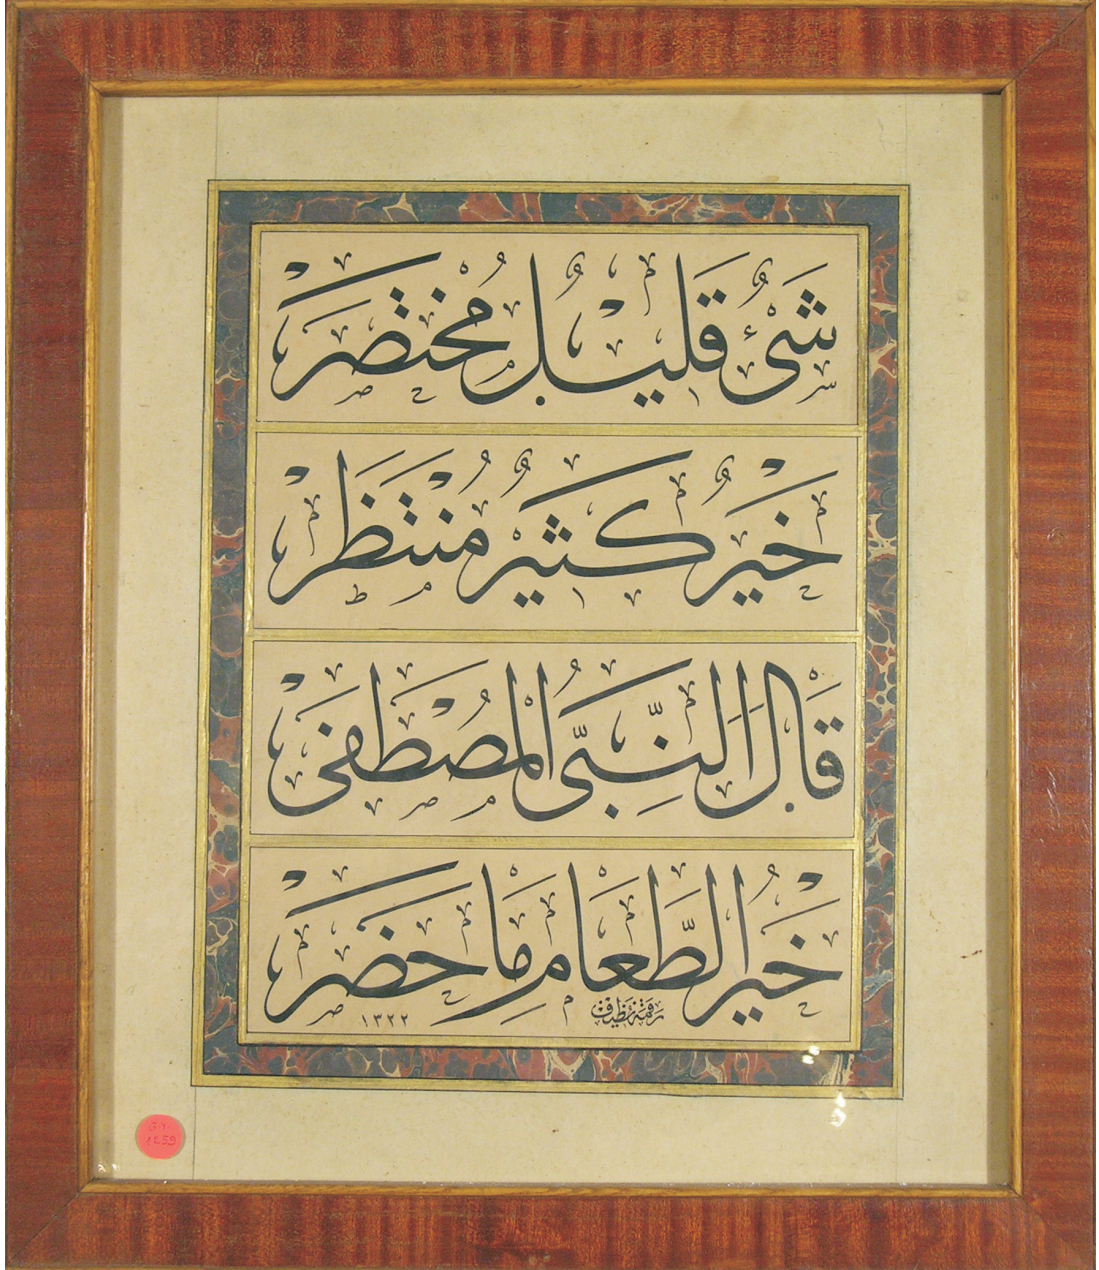 شَئٌ قَلِيلٌ مُخْتَصَرْ
خَيْرٌ كَثِيرٌ مُنْتَظَرْ
قَالَ النَّبِىُّ الْمُصْطَفَى
خَيْرُ الطَّعَامِ مَا حَضَرَ
رقمه نظيف
١٣٢٢
1259